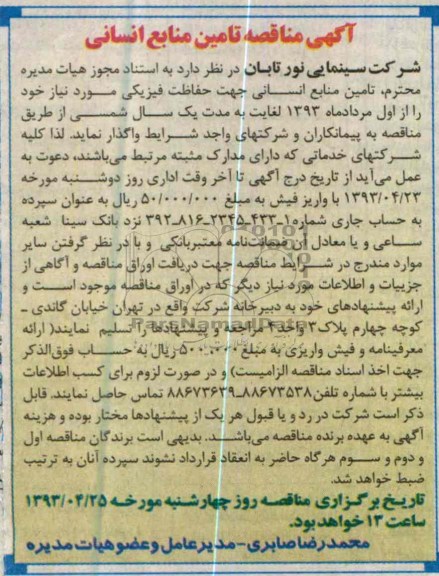 آگهی مناقصه تامین منابع انسانی
شرکت سینمایی نور تابان در نظر دارد به استناد مجوز هیات مدیره
محترم، تامین منابع انسانی جهت حفاظت فیزیکی مورد نیاز خود
را از اول مردادماه ۱۳۹۳ لغایت به مدت یک سال شمسی از طریق
مناقصه به پیمانکاران و شرکتهای واجد شرایط واگذار نماید. لذا کلیه
شرکتهای خدماتی که دارای مدارک مثبته مرتبط می‌باشند، دعوت به
عمل می‌آید از تاریخ درج آگهی تا آخر وقت اداری روز دوشنبه مورخه
۱۳۹۳/۰۴/۲۳ با واریز فیش به مبلغ ۵۰/۰۰۰/۰۰۰ ریال به عنوان سپرده
به حساب جاری شماره۱-۴۳۳-۲۳۴۵-۸۱۶-۳۹۲ نزد بانک سینا شعبه
ساعی و یا معادل آن ضمانت‌نامه معتبربانکی و با در نظر گرفتن سایر
موارد مندرج در شرایط مناقصه جهت دریافت اوراق مناقصه و آگاهی از
جزییات و اطلاعات مورد نیاز دیگر که در اوراق مناقصه موجود است و
ارائه پیشنهادهای خود به دبیرخانه شرکت واقع در تهران خیابان گاندی -
کوچه چهارم پلاک۳ واحد۴ مراجعه و پیشنهادها را تسلیم نمایند( ارائه
معرفینامه و فیش واریزی به مبلغ ۵۰۰،۰۰۰ ریال به حساب فوق‌الذکر
جهت اخذ اسناد مناقصه الزامیست) و در صورت لزوم برای کسب اطلاعات
بیشتر با شماره تلفن۸۸۶۷۳۵۳۸-۸۸۶۷۳۶۳۹ تماس حاصل نمایند. قابل
ذکر است شرکت در رد و یا قبول هر یک از پیشنهادها مختار بوده و هزینه
آگهی به عهده برنده مناقصه می‌باشد. بدیهی است برندگان مناقصه اول
و دوم و سوم هرگاه حاضر به انعقاد قرارداد نشوند سپرده آنان به ترتیب
ضبط خواهد شد.
تاریخ برگزاری مناقصه روز چهارشنبه مورخه ۱۳۹۳/۰۴/۲۵
ساعت ۱۳ خواهد بود.
محمدرضا صابری-مدیرعامل و عضو هیات مدیره